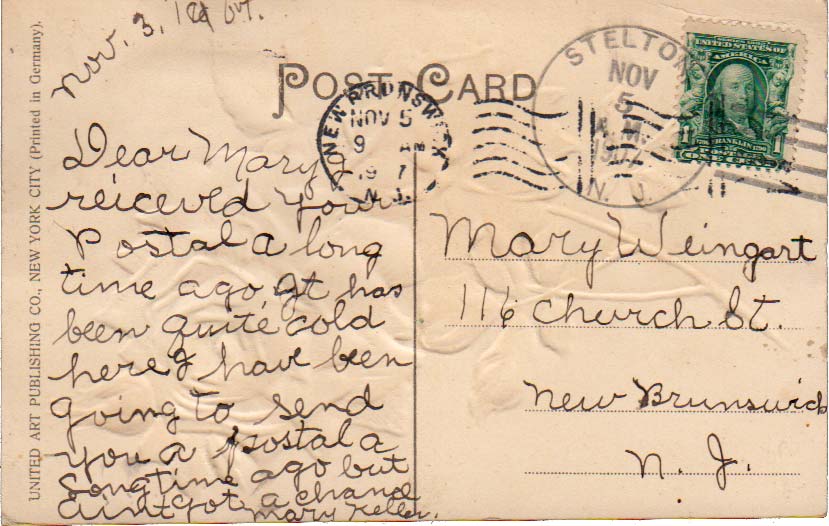 Nov. 3, 190
POST CARD
Dear Mary I
reiceved your
Postal a long
time ago, It has
been quite cold
here I have been
going to send
you a postal a
Long time ago but
aint got a chance
Mary Keller.
UNITED ART PUBLISHING CO., NEW YORK CITY (Printed in Germany).
NEW BRUNSWICK
NOV 5
9 AM
19 7
N.J.
STELTON
NOV
5
A.M.
1907
N. J.
UNITED STATES OF
AMERICA
1 FRANKLIN 1
POSTAGE
ONE CENT
Mary Weingart
116 Church St.
New Brunswick
N. J.